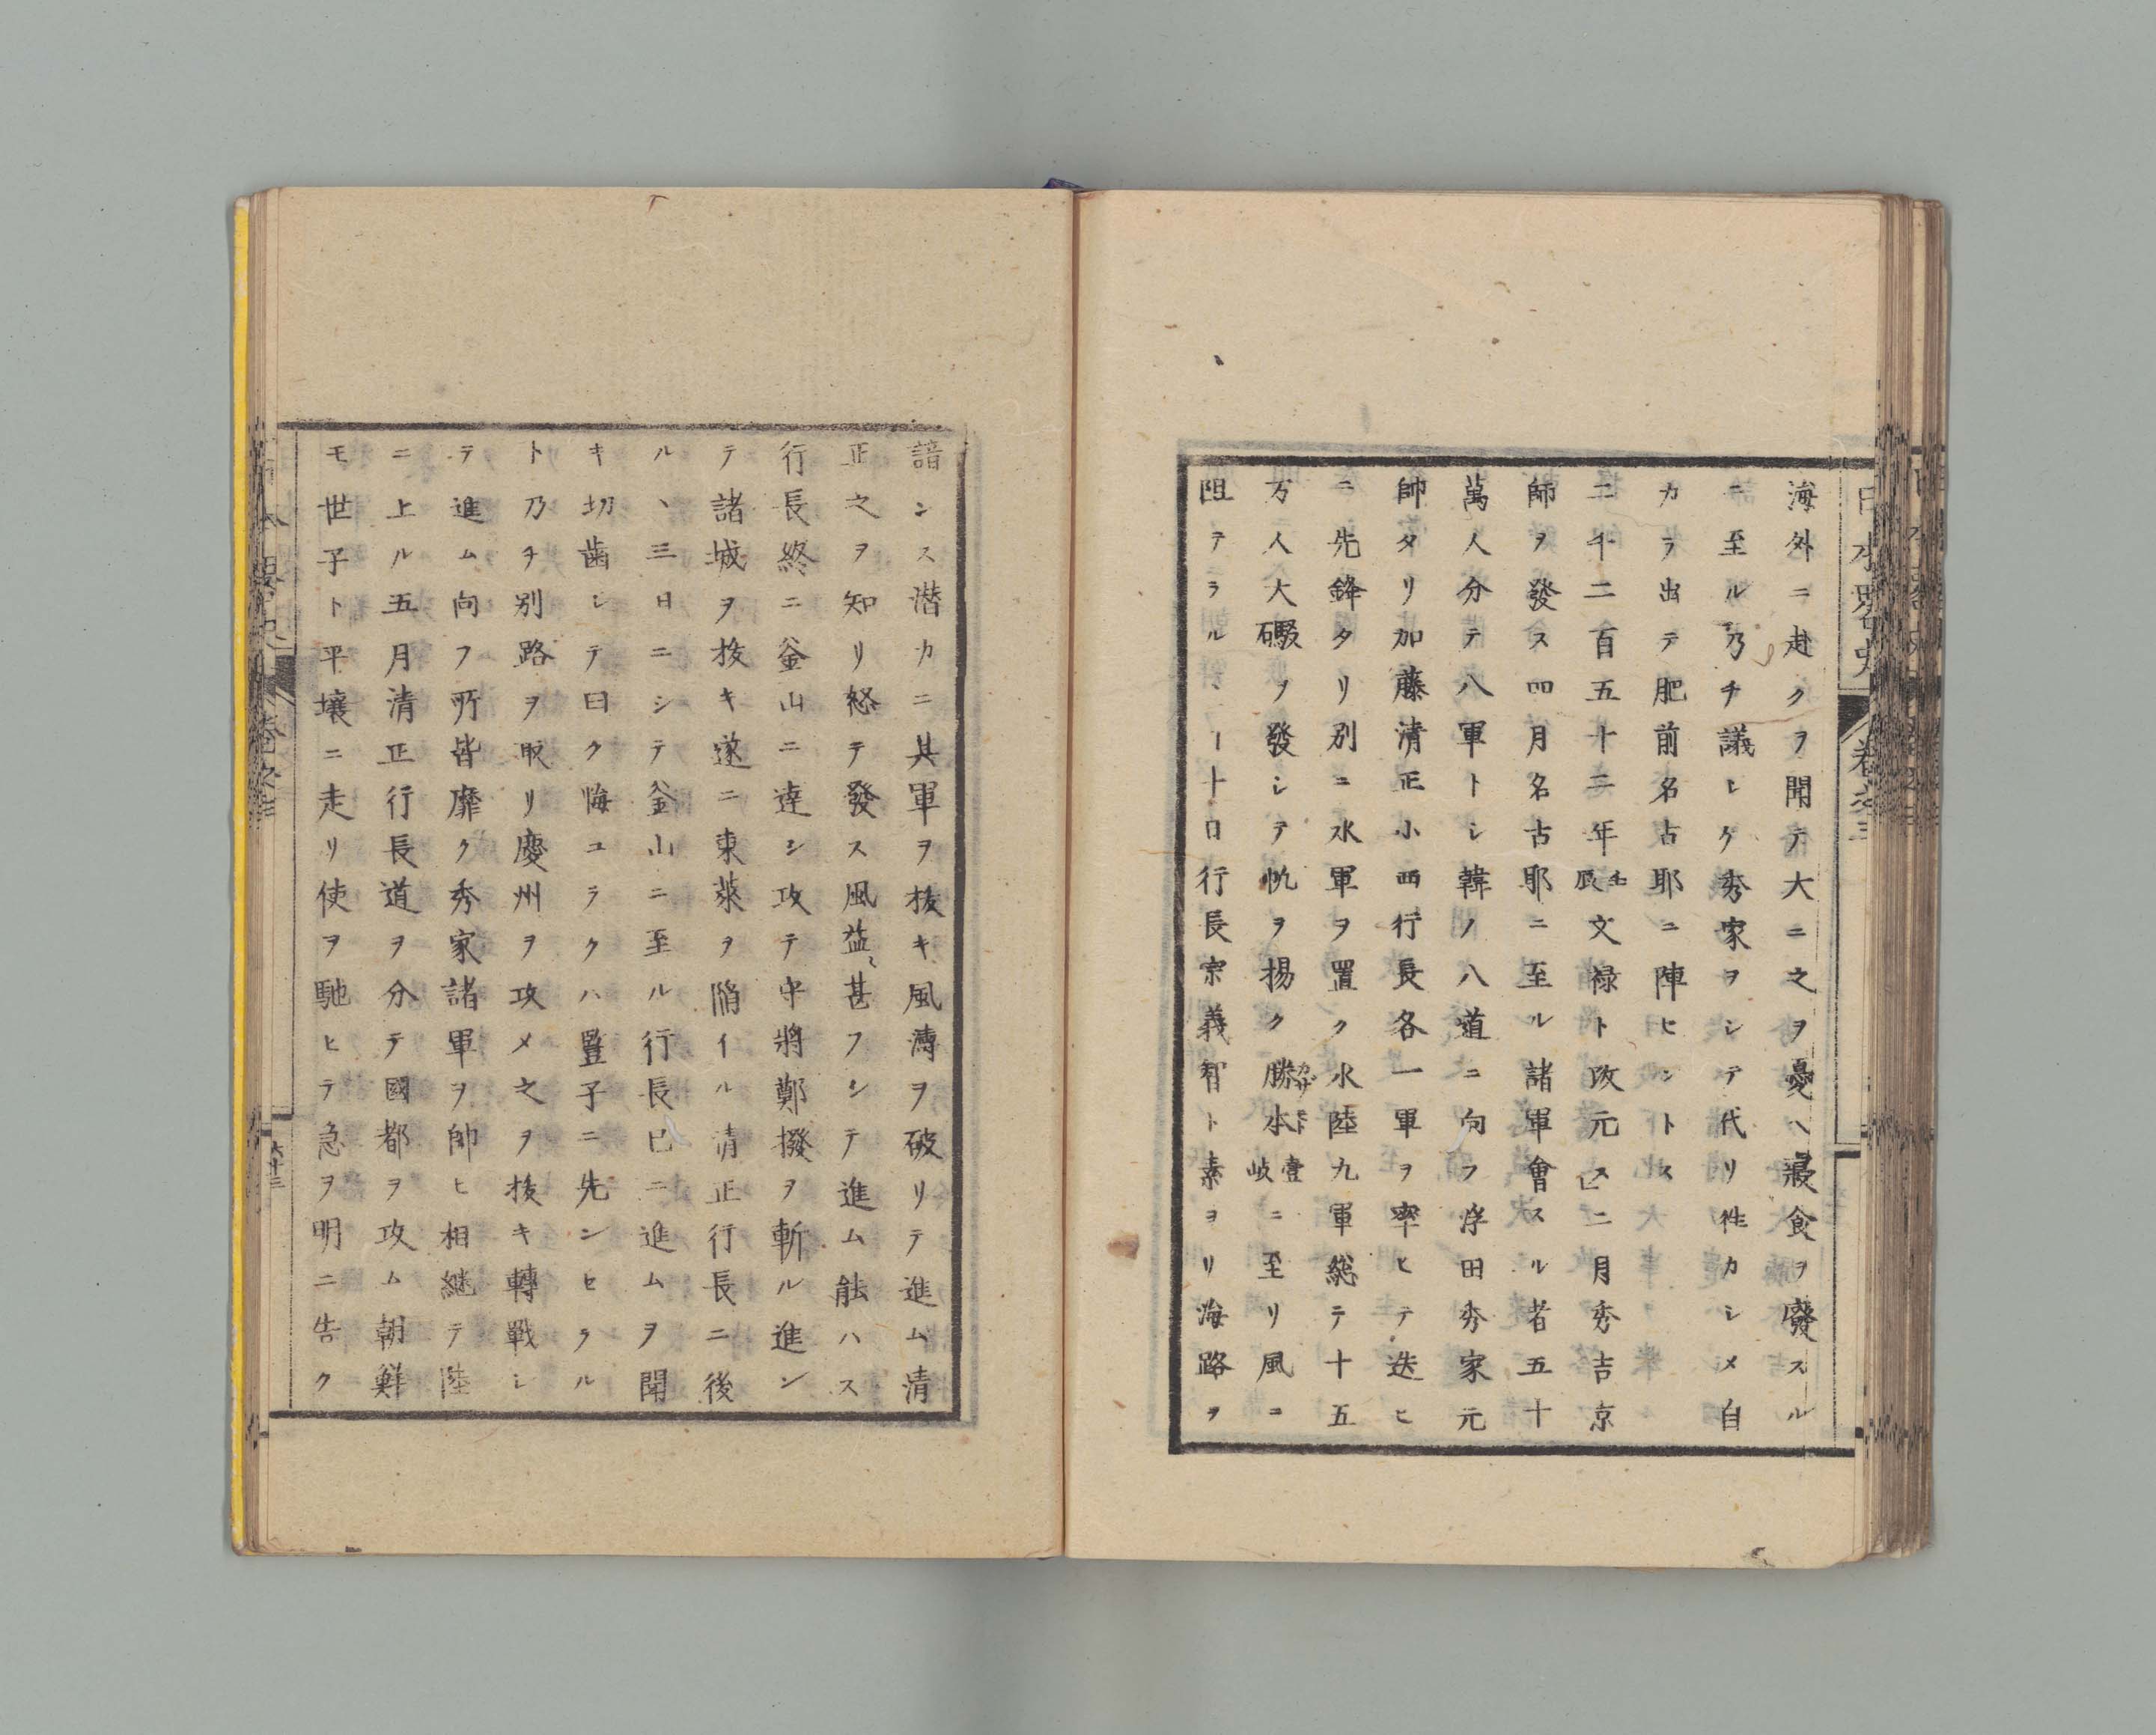 海外ニ赴クヲ聞テ大ニ之ヲ憂ヘ寢食ヲ廢スル
ニ至ル乃チ議シテ秀家ヲシテ代リ徃カシメ自
カラ出テ肥前名古耶ニ陣セントス
二千二百五十二年壬辰文禄ト改元ス二月秀吉京
師ヲ發ス四月名古耶ニ至ル諸軍會スル者五十
萬人分テ八軍トシ韓ノ八道ニ向フ浮田秀家元
帥タリ加藤清正小西行長各一軍ヲ率ヒテ迭ヒ
ニ先鋒タリ別ニ水軍ヲ置ク水陸九軍総テ十五
万人大礟ヲ發シテ帆ヲ揚ク勝本カザモト壹岐ニ至リ風ニ
阻テラルヽヿ十日行長宗義智ト素ヨリ海路ヲ
諳ンス潜カニ其軍ヲ抜キ風濤ヲ破リテ進ム清
正之ヲ知リ怒テ發ス風益〻甚フシテ進ム能ハス
行長終ニ釜山ニ達シ攻テ守將鄭撥ヲ斬ル進ン
テ諸城ヲ抜キ遂ニ東萊ヲ陥イル清正行長ニ後
ルヽ三日ニシテ釜山ニ至ル行長已ニ進ムヲ聞
キ切齒シテ曰ク悔ユラクハ豎子ニ先ンセラル
ト乃チ別路ヲ取リ慶州ヲ攻メ之ヲ抜キ轉戰シ
テ進ム向フ所皆靡ク秀家諸軍ヲ帥ヒ相継テ陸
ニ上ル五月清正行長道ヲ分テ國都ヲ攻ム朝鮮
王世子ト平壤ニ走リ使ヲ馳ヒテ急ヲ明ニ告ク
日本畧史
卷之三
六十三